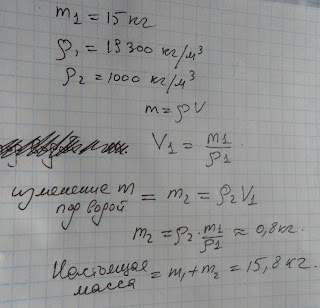 m₁ = 15 кг
ρ₁ = 19300 кг/м³
ρ₂ = 1000 кг/м³
m = ρV
V₁ = m₁/ρ₁.
изменение m под водой = m₂ = ρ₂V₁
m₂ = ρ₂ · m₁/ρ₁ ≈ 0,8 кг.
Настоящая масса = m₁ + m₂ = 15,8 кг.